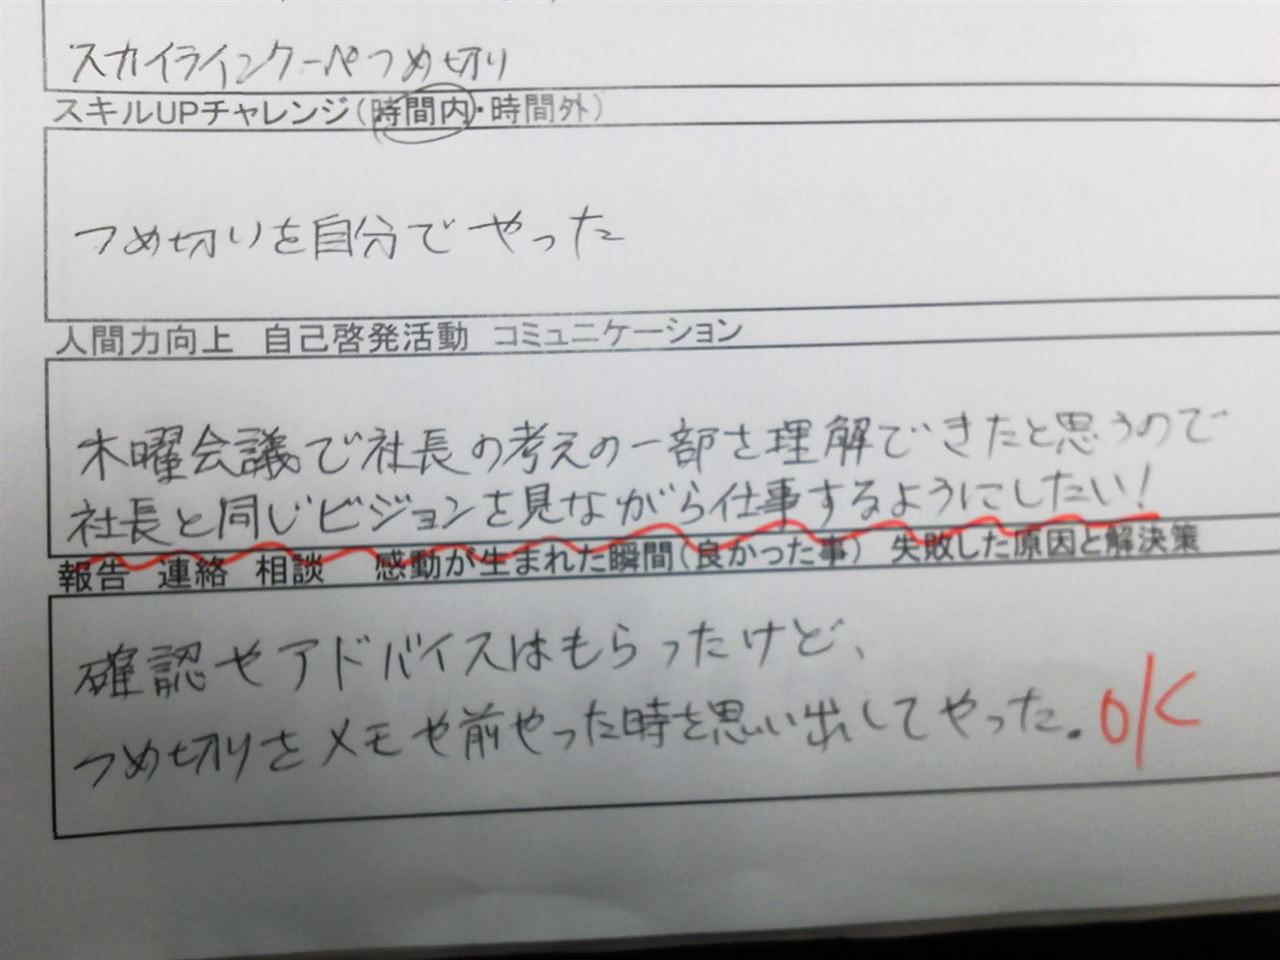 スカイラインクーペつめ切り
スキルUPチャレンジ(時間内・時間外)
つめ切りを自分でやった
人間力向上 自己啓発活動 コミュニケーション
木曜会議で社長の考えの一部を理解できたと思うので
社長と同じビジョンを見ながら仕事するようにしたい!
報告 連絡 相談 感動が生まれた瞬間(良かった事) 失敗した原因と解決策
確認やアドバイスはもらったけど、
つめ切りをメモや前やった時を思い出してやった。OK